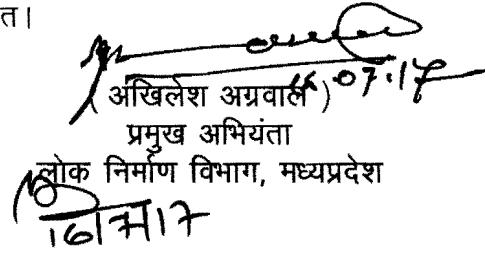 त।
(अखिलेश अग्रवाल)
प्रमुख अभियंता
लोक निर्माण विभाग, मध्यप्रदेश
16/7/17